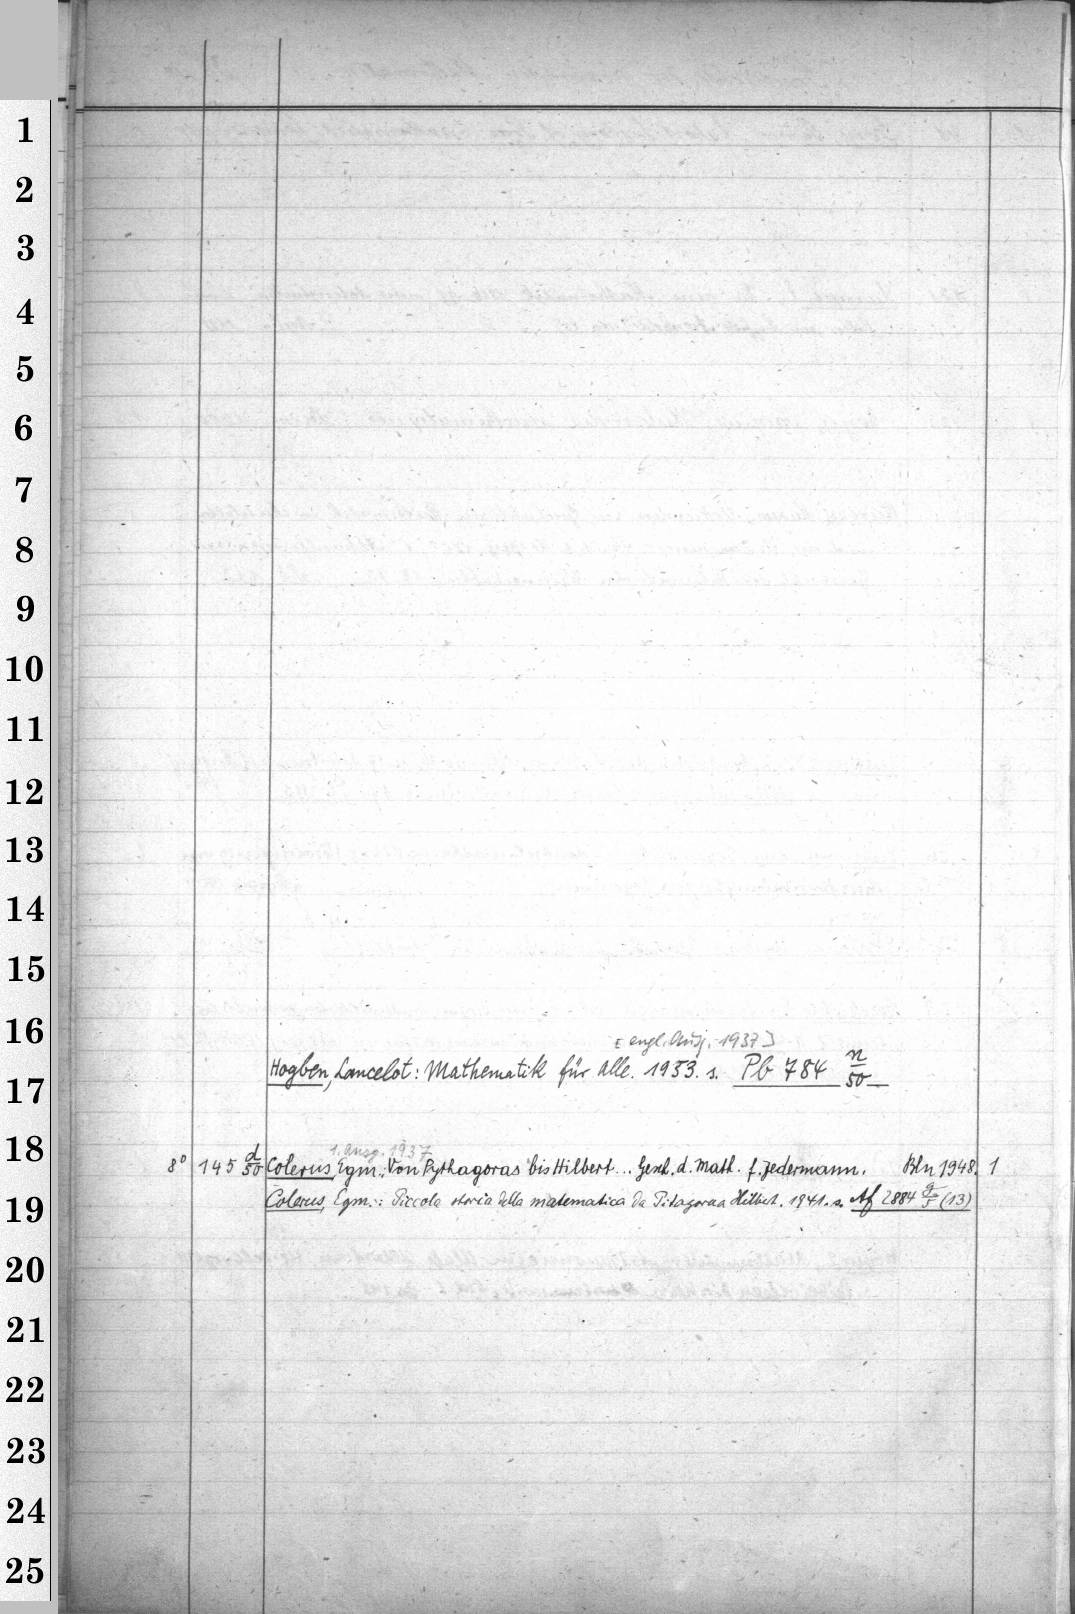 1
2
3
4
5
6
7
8
9
10
11
12
13
14
15
16
[engl. Ausg. 1937]
Hogben, Lancelot: Mathematik für Alle. 1953. s. Pb 784 n/50
17
18
1. Ausg. 1937
8° 145 d/50 Colerus, Egm.: Von Pythagoras bis Hilbert... Gesch. d. Math. f. Jedermann. Bln 1948. 1
Colerus, Egm.: Piccola storia della matematica da Pitagora a Hilbert. 1941. s. Af 2884 g/5 (13)
19
20
21
22
23
24
25